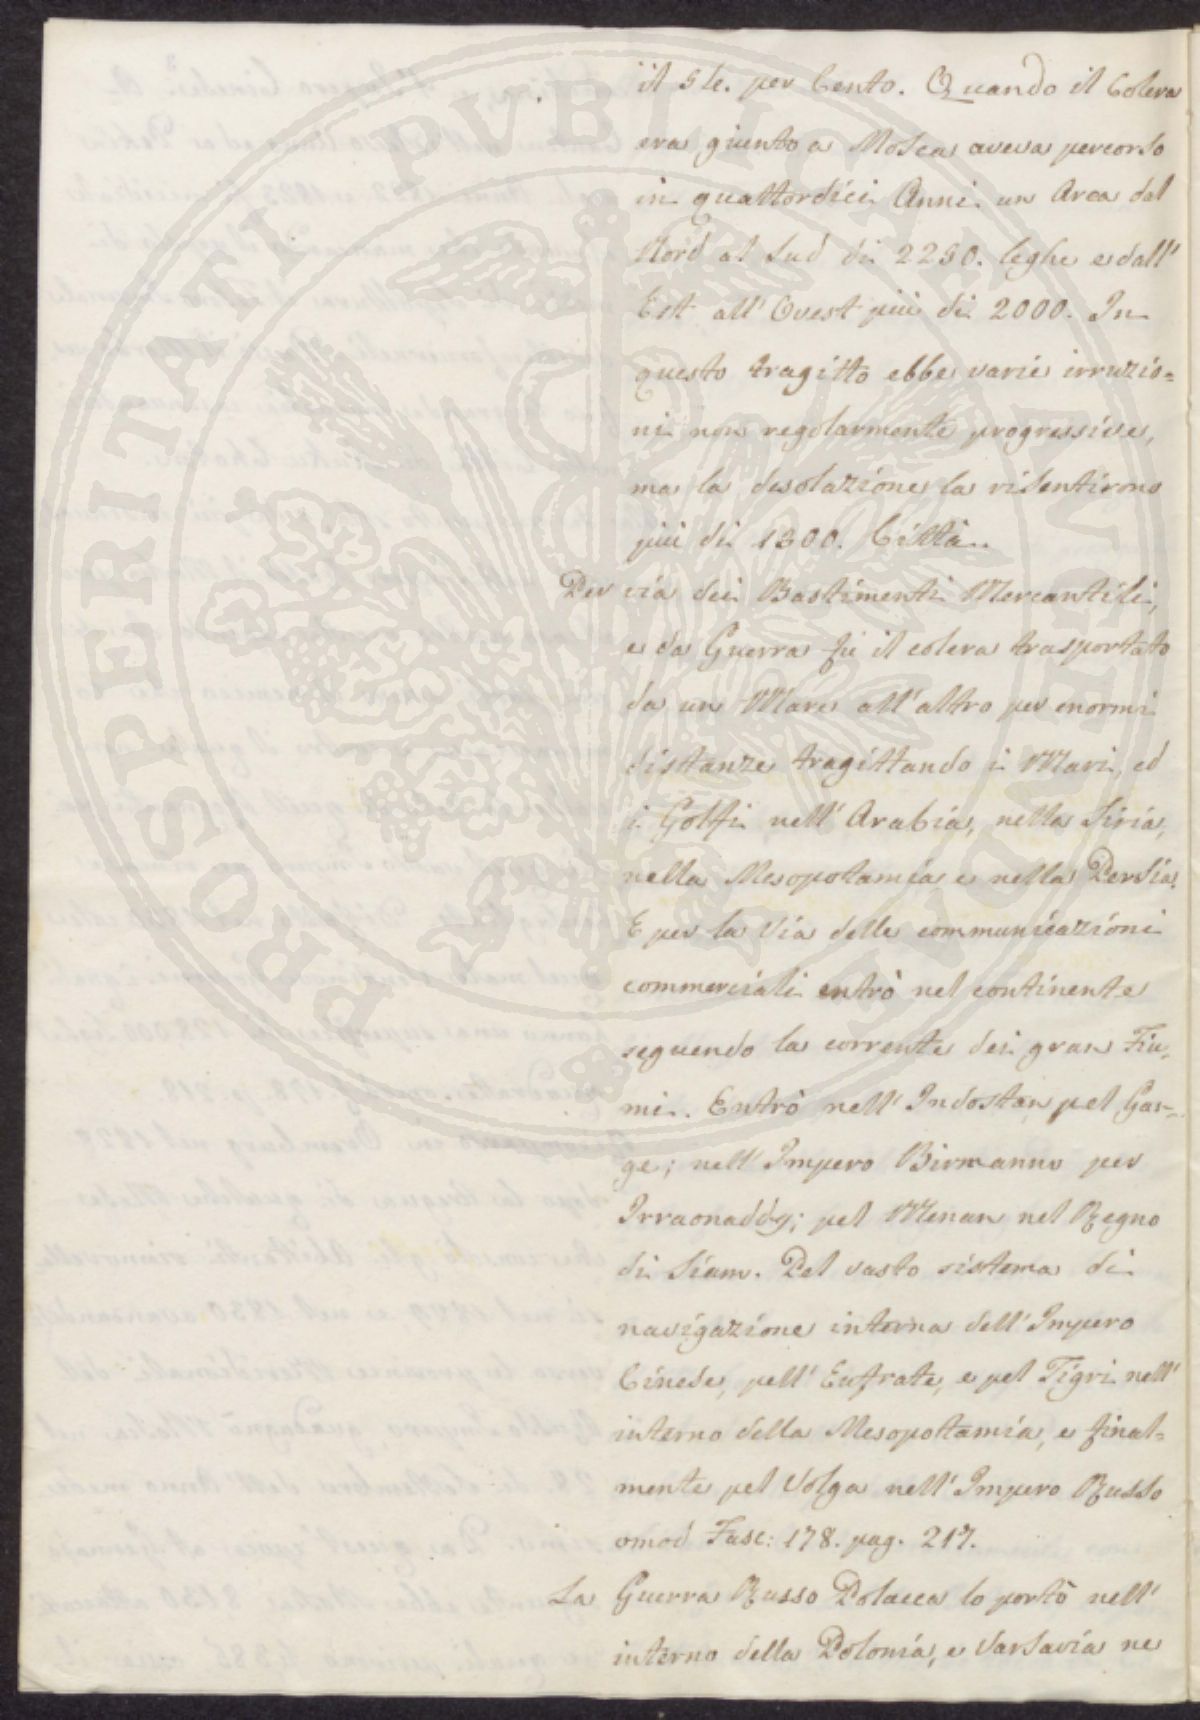 il 5le. per Cento. Quando il Colera
era giunto a Mosca aveva percorso
in quattordici Anni un Area dal
Nord al Sud di 2250. leghe e dall'
Est all' Ovest più di 2000. In
questo tragitto ebbe varie irruzio=
ni non regolarmente progressive,
ma la desolazione la risentirono
più di 1300. Città.
Per via dei Bastimenti Mercantili,
e da Guerra fù il colera trasportato
da un Mare all'altro per enormi
distanze tragittando i Mari, ed
i Golfi nell' Arabia, nella Siria,
nella Mesopotamia e nella Persia.
E per la via delle communicazioni
commerciali entrò nel continente
seguendo la corrente dei gran Fiu=
mi. Entrò nell' Indostan pel Gan=
ge; nell' Impero Birmanno per
Irraonaddy; pel Menan nel Regno
di Siam. Pel vasto sistema di
navigazione interna dell' Impero
Cinese, pell' Eufrate, e pel Tigri nell'
interno della Mesopottamia, e final=
mente pel Volga nell' Impero Russo
omod Fasc: 178. pag. 217.
La Guerra Russo Polacca lo portò nell'
interno della Polonia, e Varsavia ne
PROSPERITATI PUBLICAE AUGENDAE